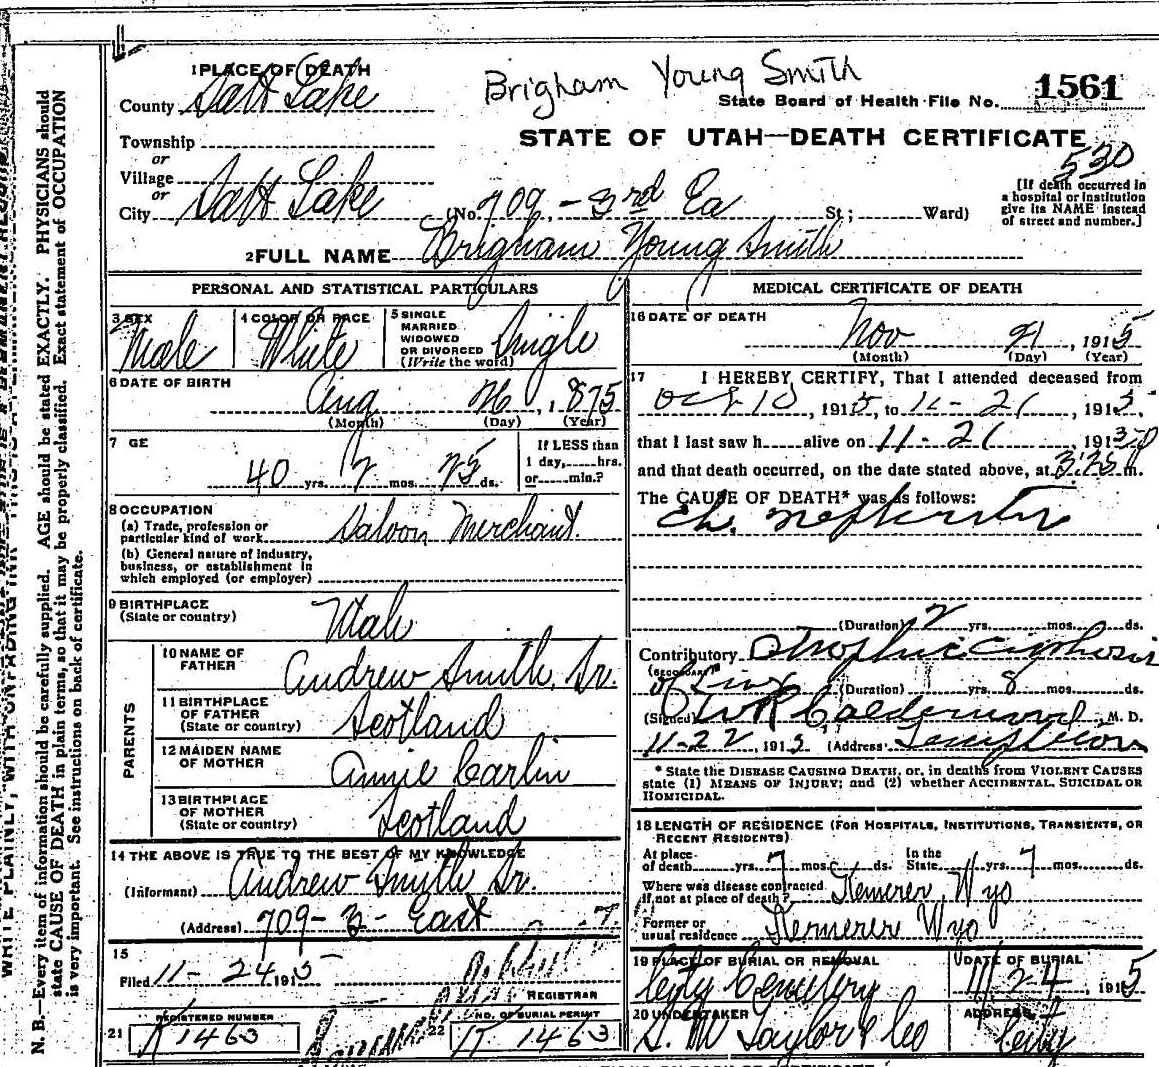 1 PLACE OF DEATH
Brigham Young Smith
County Salt Lake
State Board of Health File No. 1561
Township
STATE OF UTAH—DEATH CERTIFICATE
or
530
Village
or
City Salt Lake (No. 709, - 3rd Ea St; Ward)
[If death occurred in a hospital or institution give its NAME instead of street and number.]
2 FULL NAME Brigham Young Smith
PERSONAL AND STATISTICAL PARTICULARS
3 SEX Male
4 COLOR OR RACE White
5 SINGLE MARRIED WIDOWED OR DIVORCED (Write the word) Single
6 DATE OF BIRTH Aug 26, 1875
(Month) (Day) (Year)
7 GE 40 yrs. 2 mos. 25 ds.
If LESS than 1 day, hrs. or min.?
8 OCCUPATION
(a) Trade, profession or particular kind of work Saloon Merchant.
(b) General nature of industry, business, or establishment in which employed (or employer)
9 BIRTHPLACE
(State or country) Utah
PARENTS
10 NAME OF FATHER Andrew Smith, Sr.
11 BIRTHPLACE OF FATHER (State or country) Scotland
12 MAIDEN NAME OF MOTHER Annie Carlin
13 BIRTHPLACE OF MOTHER (State or country) Scotland
14 THE ABOVE IS TRUE TO THE BEST OF MY KNOWLEDGE
(Informant) Andrew Smith Sr.
(Address) 709 - 3 - East
15
Filed 11-24 1915
REGISTRAR
21 REGISTERED NUMBER K 1463
22 NO. OF BURIAL PERMIT K 1463
MEDICAL CERTIFICATE OF DEATH
16 DATE OF DEATH
Nov 21, 1915
(Month) (Day) (Year)
17 I HEREBY CERTIFY, That I attended deceased from
Oct 10, 1915, to 11-21, 1915,
that I last saw h alive on 11-21, 191
and that death occurred, on the date stated above, at 3:25 m.
The CAUSE OF DEATH* was as follows:
Ch. Nephritis
(Duration) 2 yrs. mos. ds.
Contributory Atrophic Cirrhosis
(SECONDARY)
of Liver (Duration) yrs. 8 mos. ds.
(Signed) W R Calderwood M. D.
11-22 1915 (Address) Templeton
* State the DISEASE CAUSING DEATH, or, in deaths from VIOLENT CAUSES
state (1) MEANS OF INJURY; and (2) whether ACCIDENTAL, SUICIDAL OR
HOMICIDAL.
18 LENGTH OF RESIDENCE (FOR HOSPITALS, INSTITUTIONS, TRANSIENTS, OR
RECENT RESIDENTS)
At place of death yrs. 7 mos. ds. In the State yrs. 7 mos. ds.
Where was disease contracted if not at place of death? Kemerer, Wyo
Former or usual residence Kemerer Wyo
19 PLACE OF BURIAL OR REMOVAL City Cemetery
DATE OF BURIAL 11/24, 1915
20 UNDERTAKER S. M Taylor & Co
ADDRESS City
N. B.—Every item of information should be carefully supplied. AGE should be stated EXACTLY. PHYSICIANS should
state CAUSE OF DEATH in plain terms, so that it may be properly classified. Exact statement of OCCUPATION
is very important. See instructions on back of certificate.
WRITE PLAINLY, WITH UNFADING INK